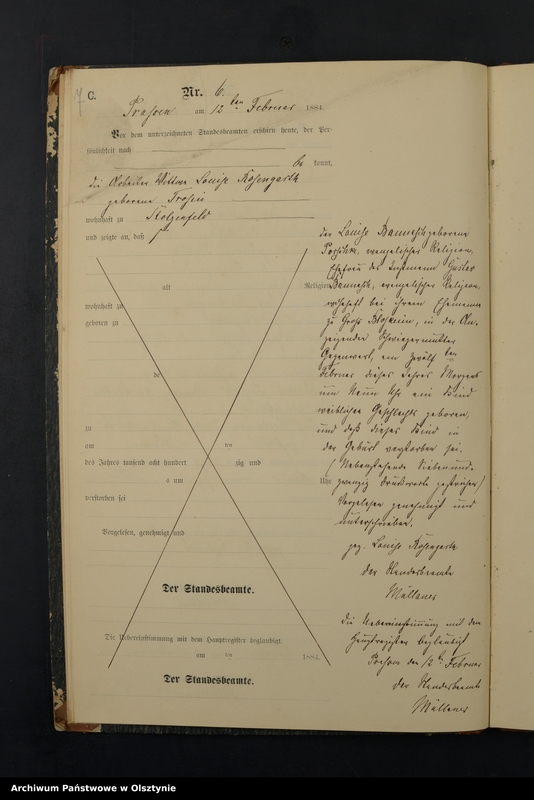 7
C.
Nr. 6.
Prassen am 12 ten Februar 1884.
Vor dem unterzeichneten Standesbeamten erschien heute, der Per-
sönlichkeit nach
be kannt,
die Arbeiter Wittwe Louise Rosengarth
geborene
wohnhaft zu
und zeigte an, daß
der Louise geborene
evangelischer Religion,
Ehefrau des Instmann Gustav
alt Religion
evangelischer Religion,
wohnhaft bei ihrem Ehemanne
wohnhaft zu
zu Groß in der An-
geboren zu
zeigender Schwiegermutter
Gegenwart, am zwölf ten
Februar dieses Jahres Morgens
de
um Neun Uhr ein Kind
weiblichen Geschlechts geboren,
zu
und daß dieses Kind in
am ten
der Geburt verstorben sei.
des Jahres tausend acht hundert zig und
(Nebenstehende Sieben und
s um Uhr
zwanzig Druckworte gestrichen)
verstorben sei
Vorgelesen genehmigt und
unterschrieben.
Vorgelesen, genehmigt und
gez. Louise Rosengarth
der Standesbeamte
Der Standesbeamte.
Müllauer
die Uebereinstimmung mit dem
Hauptregister beglaubigt
Die Uebereinstimmung mit dem Hauptregister beglaubigt
Prassen den 12 ten Februar
am ten 1884.
der Standesbeamte
Der Standesbeamte.
Müllauer
Archiwum Państwowe w Olsztynie